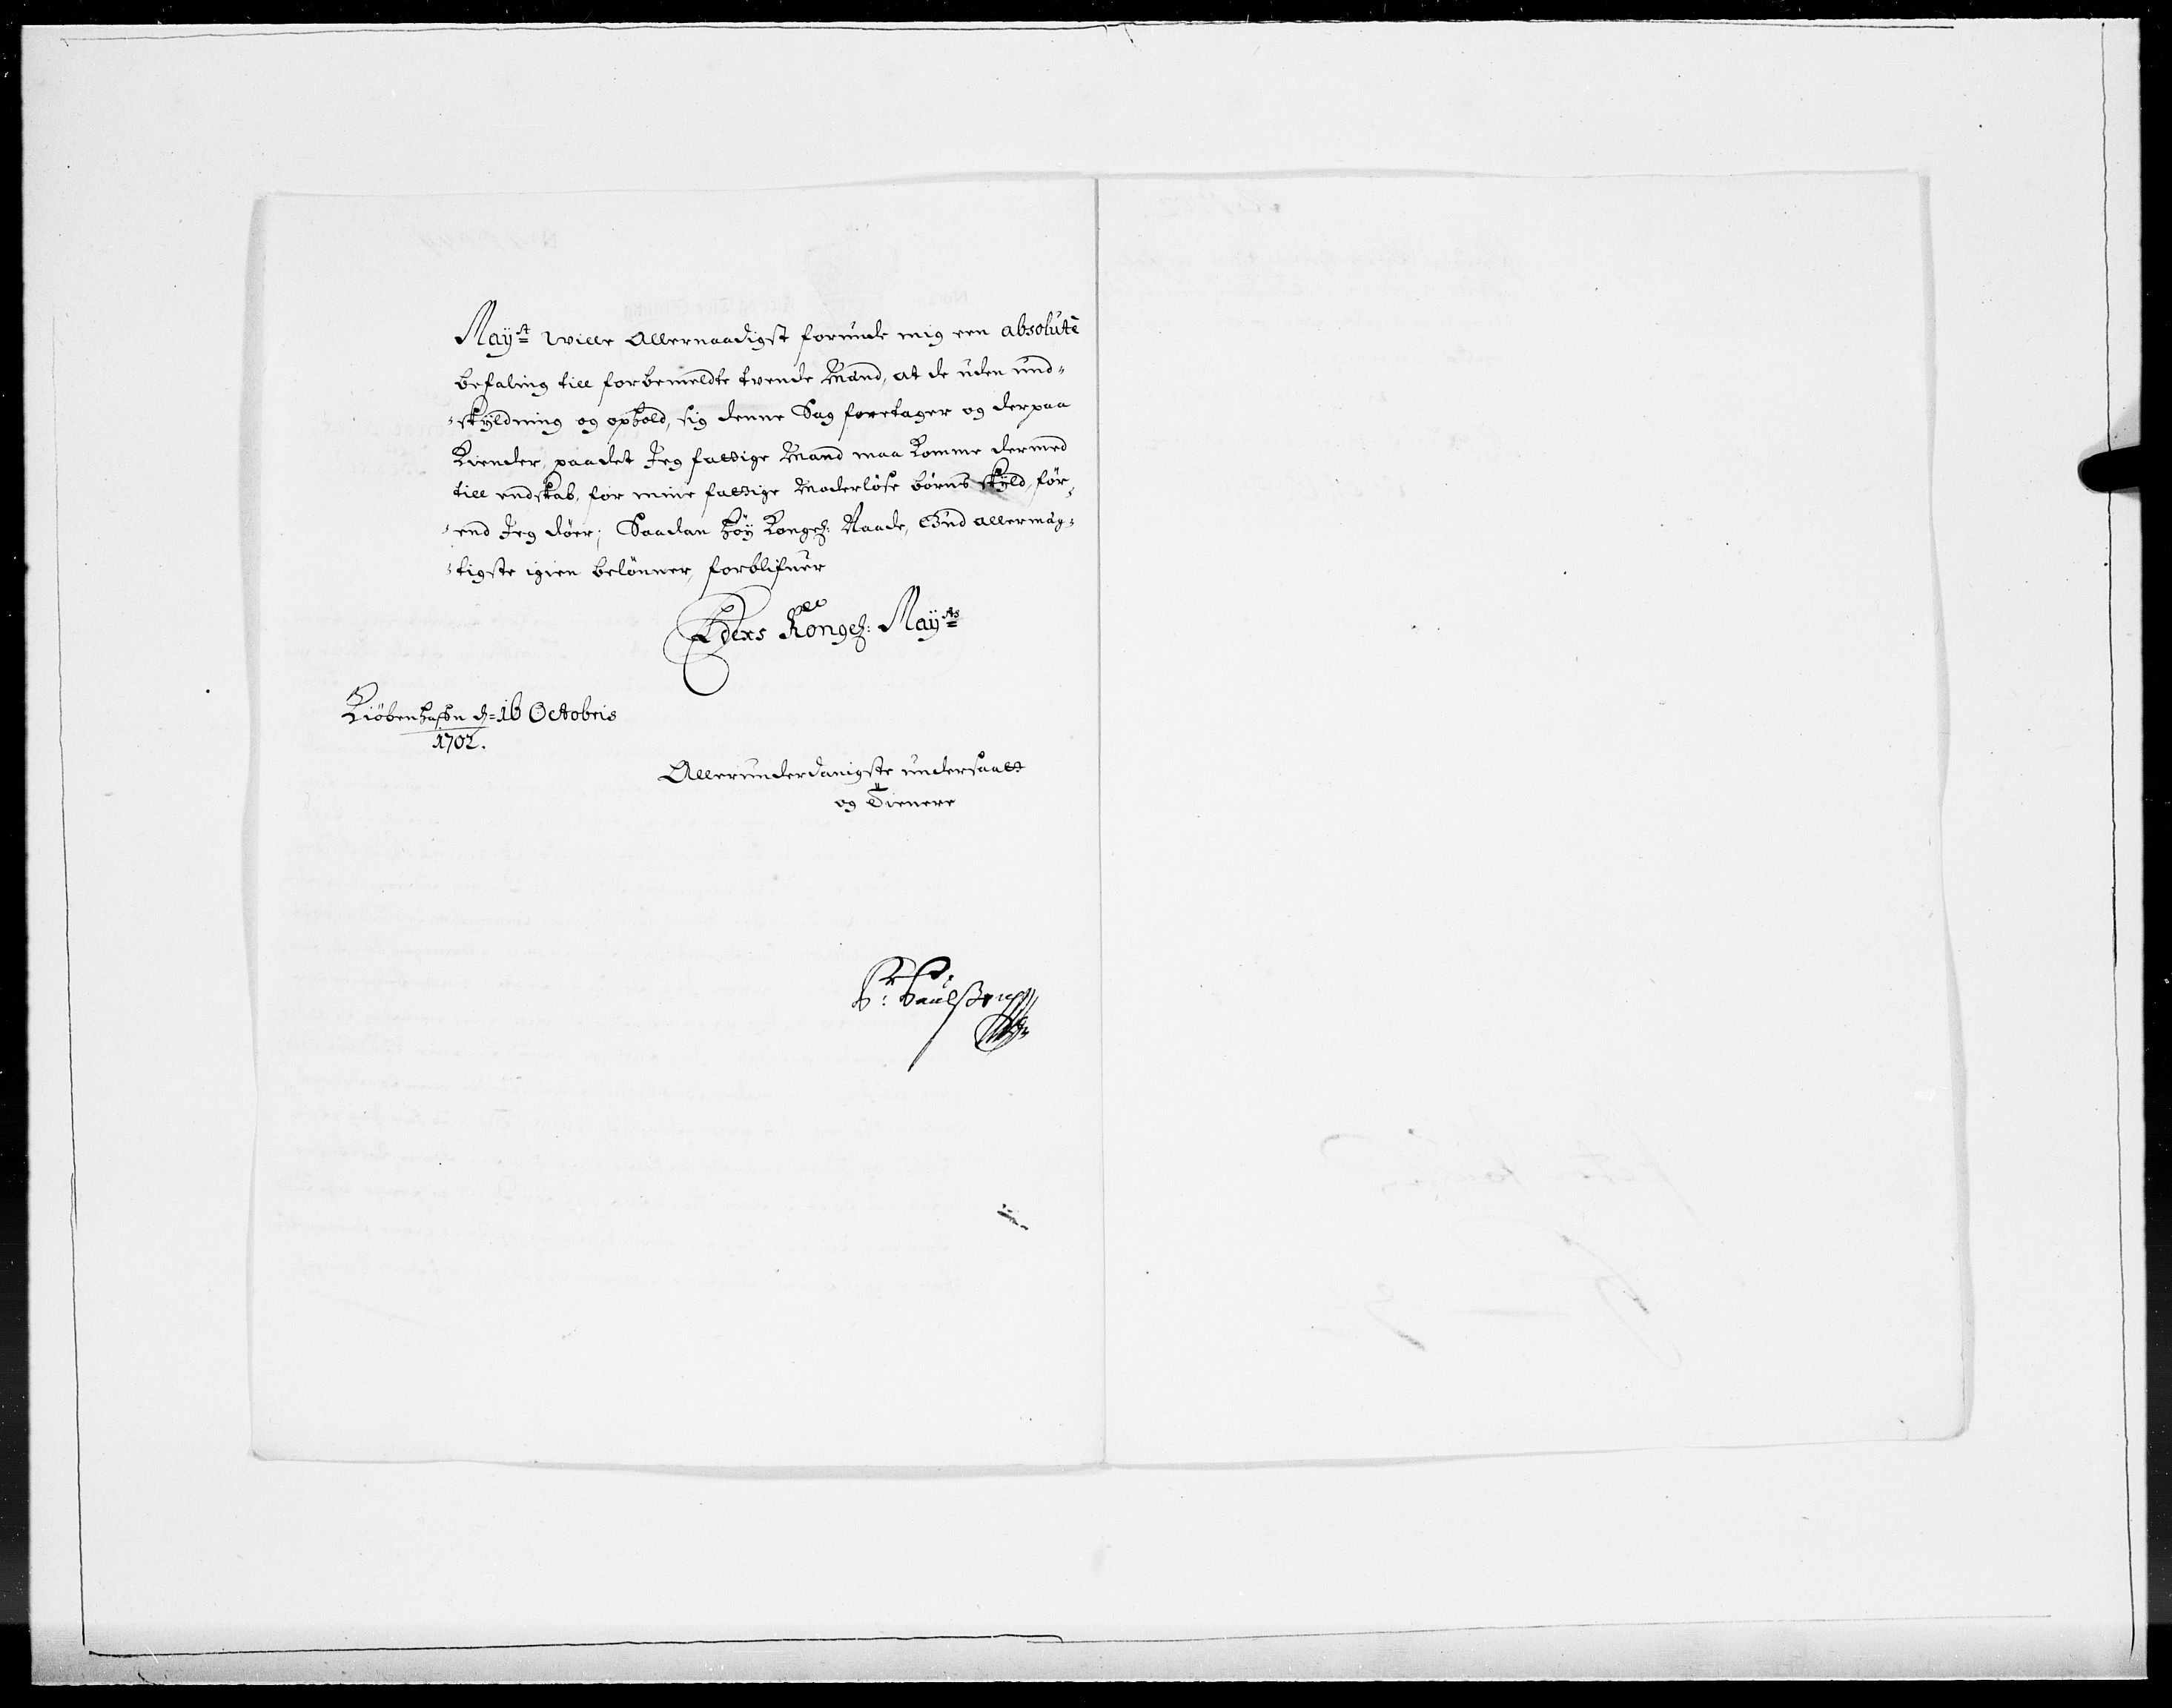 May:ᵗ wille Allernaadigst forunde mig een absolute
befaling till forbemeldte tvende Mænd, at de uden und-
skyldning og ophold, sig denne Sag foretager og derpaa
Kiender, paadet Jeg fattige Mand maa komme dermed
till endskab, for mine fattige Moderløse børns skyld, før-
end Jeg døer; Saadan høy Kongel: Naade, Gud allermæg-
tigste igien belønner, forblifuer
Eders Kongel: May:ᵗˢ
Kiøbenhafn d: 16 Octobris
1702.
Allerunderdanigste undersaatt
og Tienere